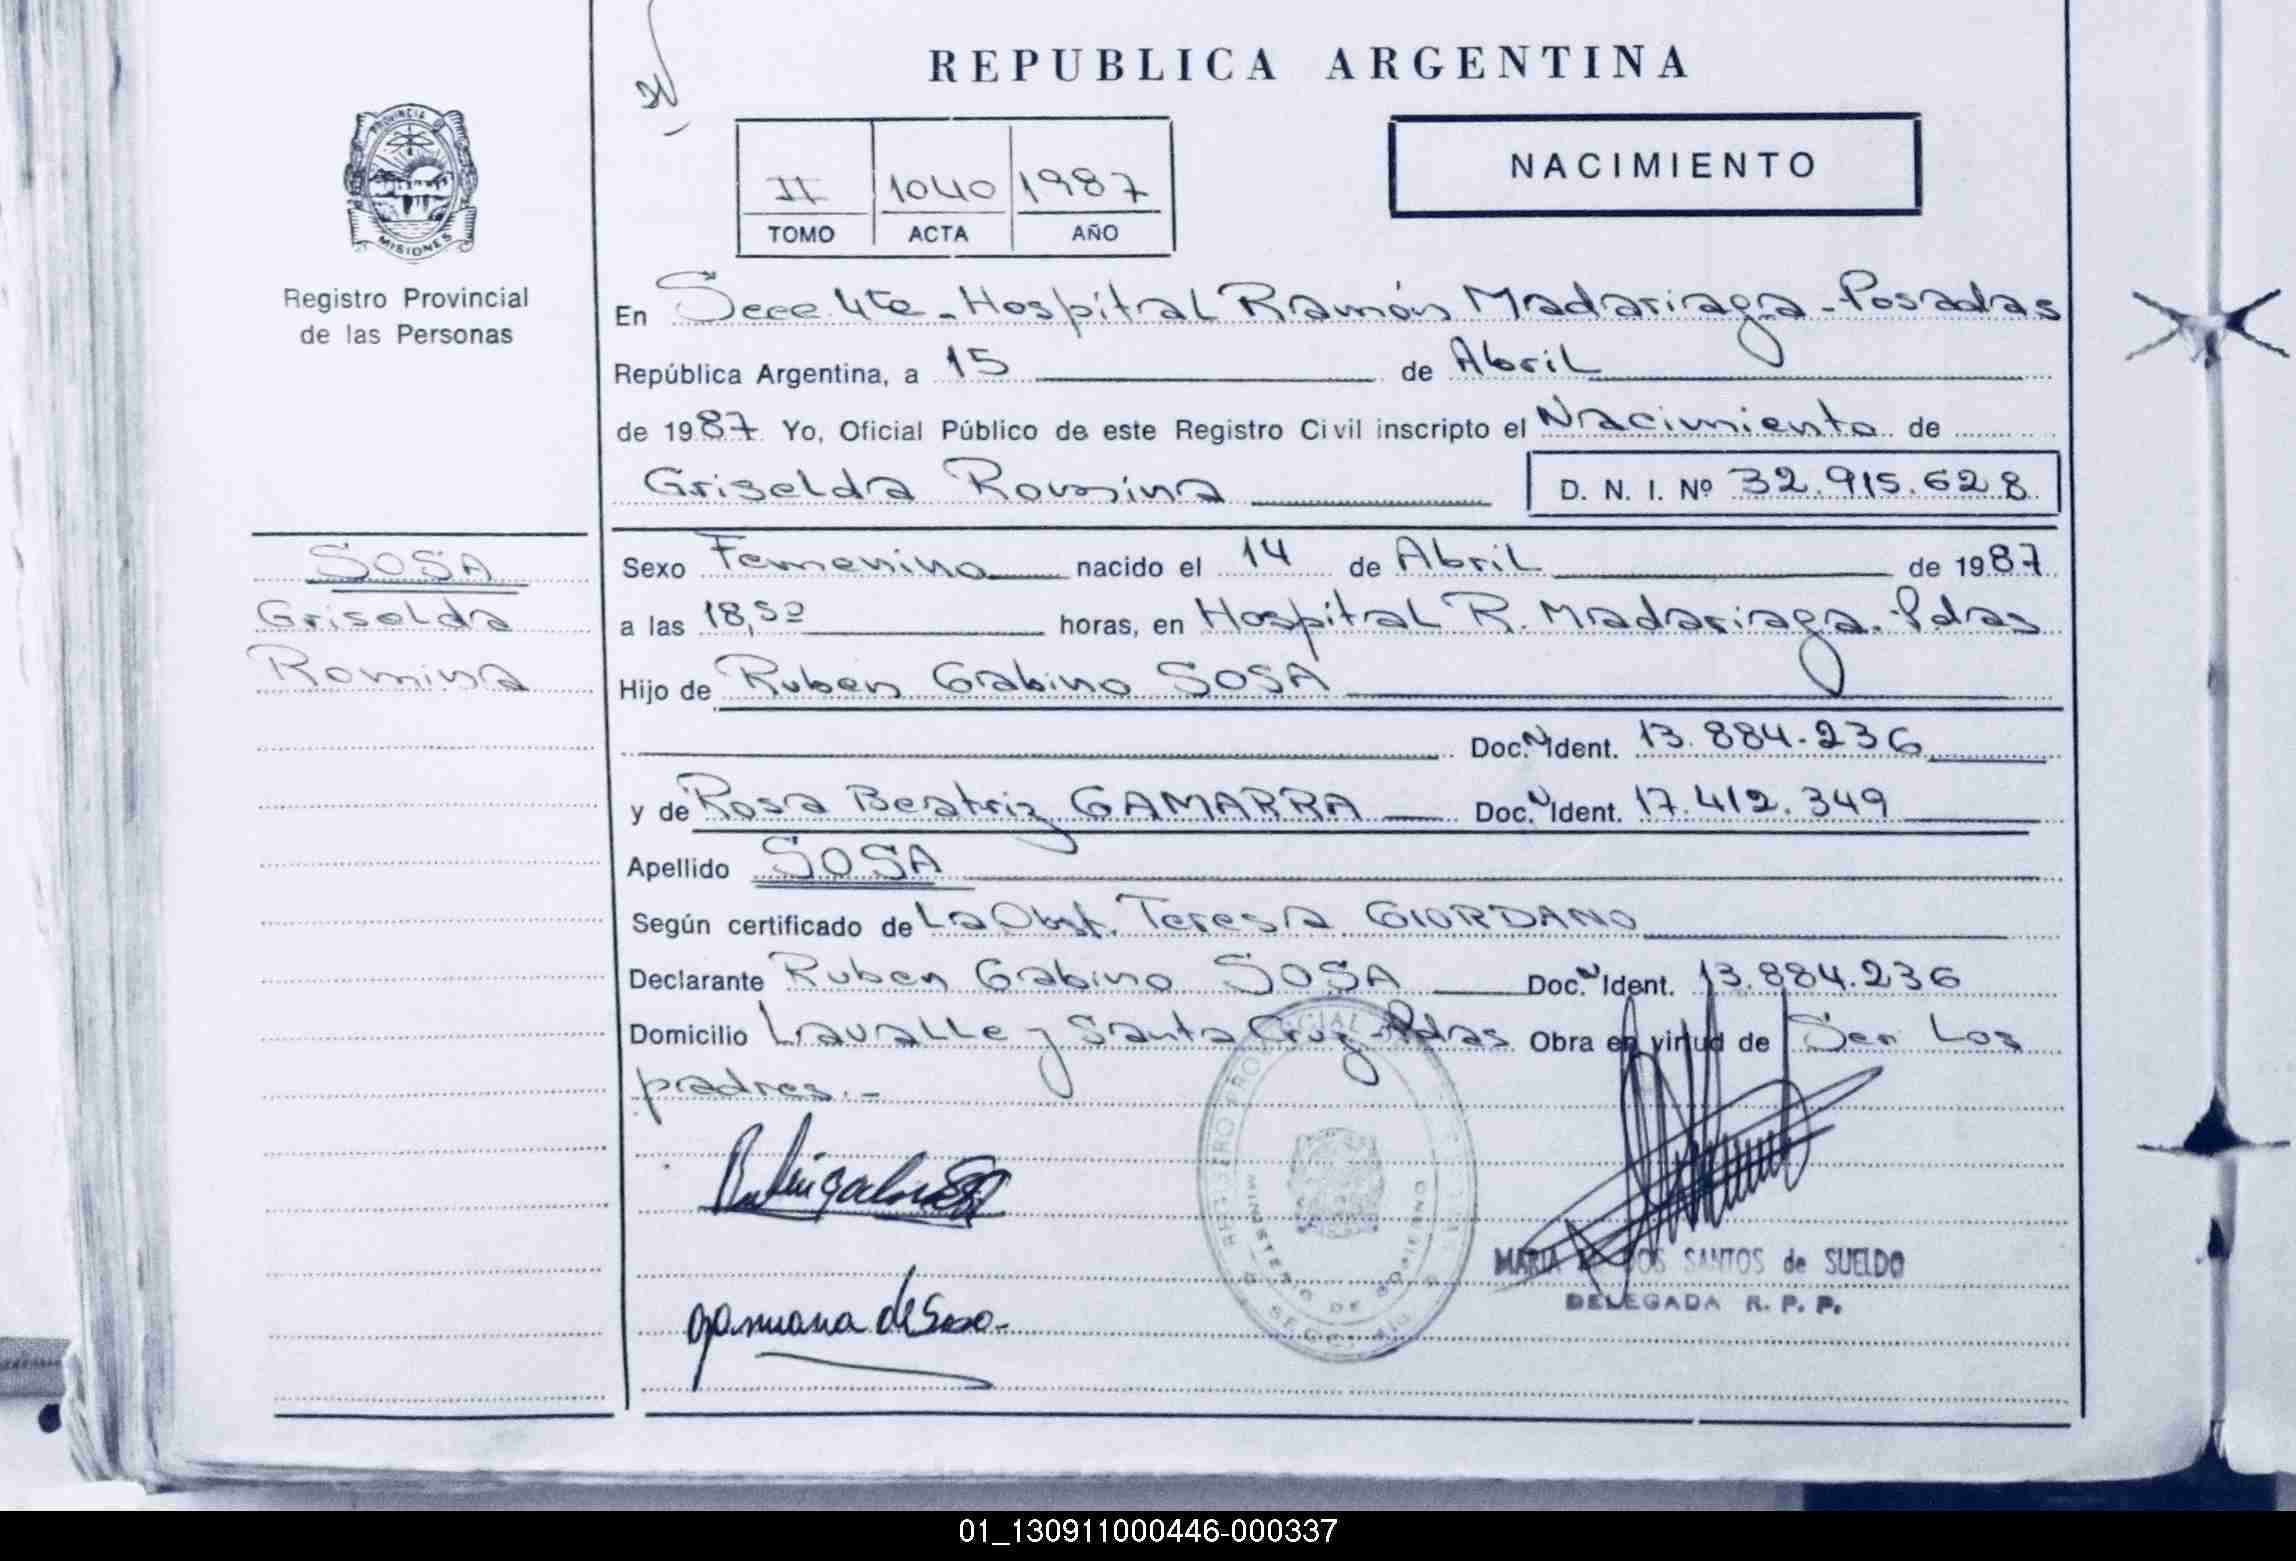 REPUBLICA ARGENTINA
PROVINCIA DE
MISIONES
Registro Provincial
de las Personas
II 1040 1987
TOMO ACTA AÑO
NACIMIENTO
En Secc 4ta - Hospital Ramón Madariaga - Posadas
República Argentina, a 15 de Abril
de 1987 Yo, Oficial Público de este Registro Civil inscripto el Nacimiento de
Griselda Romina D. N. I. Nº 32.915.628
SOSA
Griselda
Romina
Sexo Femenino nacido el 14 de Abril de 1987
a las 18,50 horas, en Hospital R. Madariaga - Pdas
Hijo de Ruben Gabino SOSA
Doc. N Ident. 13.884.236
y de Rosa Beatriz GAMARRA Doc. N Ident. 17.412.349
Apellido SOSA
Según certificado de La Obst. Teresa GIORDANO
Declarante Ruben Gabino SOSA Doc. N Ident. 13.884.236
Domicilio Lavalle y Santa Cruz - Pdas Obra en virtud de Ser Los
padres.-
REGISTRO PROVINCIAL
MINISTERIO DE GOBIERNO
gamarra de Sosa-
MARIA DOS SANTOS de SUELDO
DELEGADA R. P. P.
01_130911000446-000337